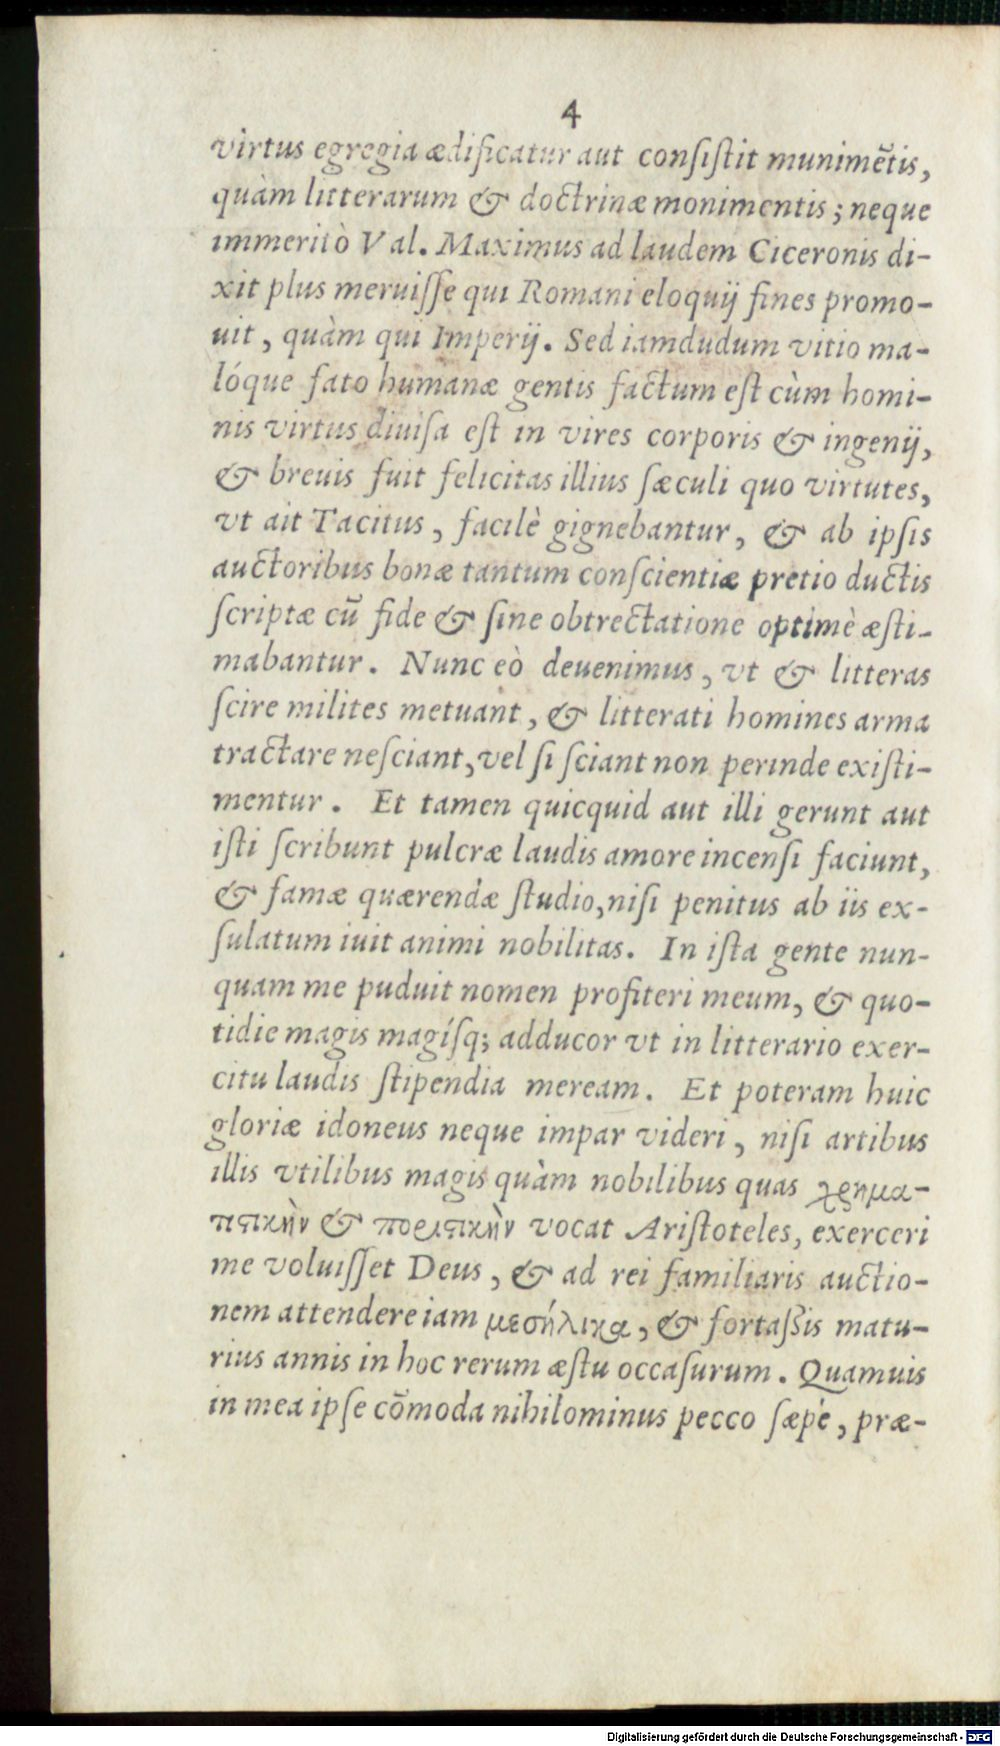 4
virtus egregia ædificatur aut consistit munimẽtis,
quàm litterarum & doctrinæ monimentis; neque
immeritò Val. Maximus ad laudem Ciceronis di-
xit plus meruisse qui Romani eloquij fines promo-
uit, quàm qui Imperij. Sed iamdudum vitio ma-
lóque fato humanæ gentis factum est cùm homi-
nis virtus diuisa est in vires corporis & ingenij,
& breuis fuit felicitas illius sæculi quo virtutes,
vt ait Tacitus, facilè gignebantur, & ab ipsis
auctoribus bonæ tantum conscientiæ pretio ductis
scriptæ cũ fide & sine obtrectatione optimè æsti-
mabantur. Nunc eò deuenimus, vt & litteras
scire milites metuant, & litterati homines arma
tractare nesciant, vel si sciant non perinde existi-
mentur. Et tamen quicquid aut illi gerunt aut
isti scribunt pulcræ laudis amore incensi faciunt,
& famæ quærendæ studio, nisi penitus ab iis ex-
sulatum iuit animi nobilitas. In ista gente nun-
quam me puduit nomen profiteri meum, & quo-
tidie magis magísq; adducor vt in litterario exer-
citu laudis stipendia meream. Et poteram huic
gloriæ idoneus neque impar videri, nisi artibus
illis vtilibus magis quàm nobilibus quas χρημα-
τιτικὴν & ποριστικὴν vocat Aristoteles, exerceri
me voluisset Deus, & ad rei familiaris auctio-
nem attendere iam μεσήλικα, & fortaßis matu-
rius annis in hoc rerum æstu occasurum. Quamuis
in mea ipse cõmoda nihilominus pecco sæpe, præ-
Digitalisierung gefördert durch die Deutsche Forschungsgemeinschaft - DFG